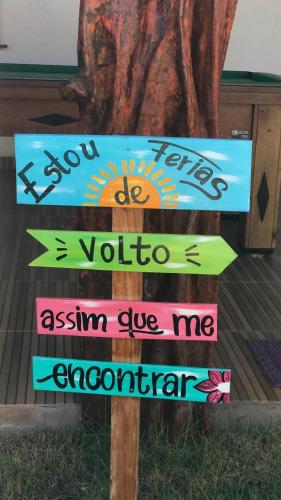 Estou de Ferias
VOLTO
assim que me
encontrar